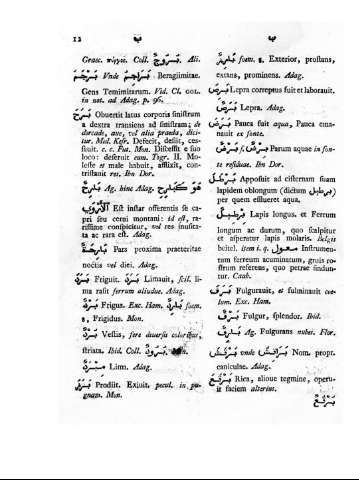 12 ب ب
Graec. πύργος. Coll. بَرُوج. Ali.
بُرْجُم Vnde بَرَاجِم Beragiimitae.
Gens Temimitarum. Vid. Cl.
in not. ad Adag. p. 96.
بَرَحَ Obuertit latus corporis sinistrum
a dextra transiens ad sinistram; de
dorcade, aue, vel alia praeda, dici-
tur. Mul. Kefr. Defecit, desiit, ces-
sauit. c. c. Fut. Mon. Discessit e suo
loco: deseruit eum. Togr. II. Mo-
leste et male habuit, afflixit, con-
tristauit res. Ibn Dor.
بَارِح Ag. hinc Adag. هُوَ كَبَارِح
الأَرْوَى Est instar offerentis se ca-
pri seu cerui montani: id est, ra-
rissime conspicitur, vel res inusita-
ta ac rara est. Adag.
بَارِحَة Pars proxima praeteritae
noctis vel diei. Adag.
بَرَدَ Friguit. بَرَدَ Limauit, scil. li-
ma rasit ferrum aliudue. Adag.
بَرْد Frigus. Exc. Ham. بَارِد foem.
ة, Frigidus. Mon.
بُرْد Vestis, fere diuersis coloribus,
striata. Ibid. Coll. بُرُود. Mon.
مِبْرَد Lima. Adag.
بَرَزَ Prodiit. Exiuit. pecul. in pu-
gnam. Mon.
بَارِز foem. ة. Exterior, prostans,
extans, prominens. Adag.
بَرِصَ Lepra correptus fuit et laborauit.
بَرَص Lepra. Adag.
بَرَضَ Pauca fuit aqua, Pauca ema-
nauit ex fonte.
بَرْض Parum aquae in fon-
te residuae. Ibn Dor.
Apposuit ad cisternam suam
lapidem oblongum (dictum بِرْطِيل)
per quem efflueret aqua.
بِرْطِيل Lapis longus. et Ferrum
longum ac durum, quo scalpitur
et asperatur lapis molaris. Belgis
beitel. item i. q. مِعْوَل Instrumen-
tum ferreum acuminatum, gruis ro-
strum referens, quo petrae findun-
tur. Cach.
بَرَقَ Fulgurauit, et fulminauit coe-
lum. Exc. Ham.
بَرْق Fulgur, splendor. Ibid.
بَارِق Ag. Fulgurans nubes. Flor.
vnde Nom. propr.
caniculae. Adag.
بَرْقَعَ Rica, alioue tegmine, operu-
it faciem alterius.
بُرْقُع